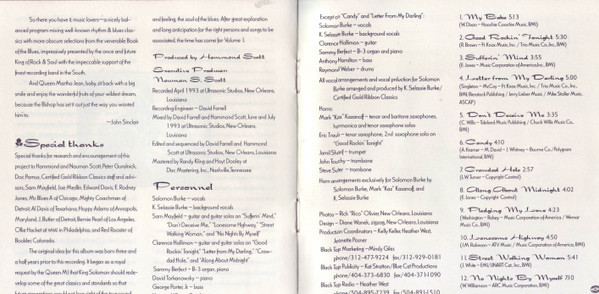 So there you have it, music lovers—a nicely bal-
anced program mixing well-known rhythm & blues clas-
sics with more obscure selections from the venerable Book
of the Blues, impressively presented by the once and future
King of Rock & Soul with the impeccable support of the
finest recording band in the South.
And Queen Martha Jean, baby, sit back with a big
smile and enjoy the wonderful fruits of your wildest dream,
because the Bishop has set it out just the way you wanted
him to.
—John Sinclair
Special thanks
Special thanks for research and encouragement of this
project to Hammond and Nauman Scott, Peter Guralnick,
Doc Pomus, Certified Gold Ribbon Classics staff and advi-
sors, Sam Mayfield, Joe Medlin, Edward Davis, E. Rodney
Jones, Mr. Blues A of Chicago, Mighty Crawchaten of
Detroit, Al Davis of Texarkana, Happy Adams of Annapolis,
Maryland, J. Butler of Detroit, Bernie Pearl of Los Angeles,
Ollie Hacket at WHAT in Philadelphia, and Red Rooster of
Boulder, Colorado.
The original idea for this album was born three and
a half years prior to this recording. It began as a royal
request by the Queen MJ that King Solomon should rede-
velop some of the great classics and standards so that
and feeling, the soul of the blues. After great exploration
and long anticipation for the right persons and songs to be
associated, the time has come for Volume 1.
Produced by Hammond Scott
Executive Producer
Nauman S. Scott
Recorded April 1993 at Ultrasonic Studios, New Orleans,
Louisiana
Recording Engineer — David Farrell
Mixed by David Farrell and Hammond Scott, June and July
1993 at Ultrasonic Studios, New Orleans,
Louisiana
Edited and sequenced by David Farrell and Hammond
Scott at Ultrasonic Studios, New Orleans, Louisiana
Mastered by Randy Kling and Hoyt Dooley at
Disc Mastering, Inc., Nashville, Tennessee
Personnel
Solomon Burke — vocals
K. Selassie Burke — background vocals
Sam Mayfield — guitar and guitar solos on "Sufferin' Mind,"
"Don't Deceive Me," "Lonesome Highway," "Street
Walking Woman," and "No Nights By Myself"
Clarence Hollimon — guitar and guitar solos on "Good
Rockin' Tonight," "Letter from My Darling," "Crow-
ded Hole," and "Along About Midnight"
Sammy Berfect — B-3 organ, piano
David Torkanowsky — piano
George Porter, Jr. — bass
Except on "Candy" and "Letter From My Darling":
Solomon Burke — vocals
K. Selassie Burke — background vocals
Clarence Hollimon — guitar
Sammy Berfect — B-3 organ and piano
Anthony Hamilton — bass
Raymond Weber — drums
All vocal arrangements and vocal production for Solomon
Burke arranged and produced by K. Selassie Burke/
Certified Gold Ribbon Classics
Horns:
Mark "Kaz" Kazanoff — tenor and baritone saxophones,
harmonica and tenor saxophone solos
Eric Traub — tenor saxophone, 2nd saxophone solo on
"Good Rockin' Tonight"
Jamil Sharif — trumpet
John Touchy — trombone
Steve Suter — trombone
Horn arrangements exclusively for Solomon Burke by
Solomon Burke, Mark "Kaz" Kazanoff, and
K. Selassie Burke
Photos — Rick "Rico" Olivier, New Orleans
Design — Diane Wanek, zigzag, New Orleans, Louisiana
Production Coordinators — Kelly Keller, Heather West,
Jeanette Posner
Black Top Marketing — Mindy Giles
phone/312-477-9224 fax/312-929-0181
Black Top Publicity — Kat Stratton/Blue Cat Productions
phone/404-373-6830 fax/404-371-1090
Black Top Radio — Heather West
1. My Babe 5:13
(W. Dixon — Hoochie Coochie Music, BMI)
2. Good Rockin' Tonight 5:30
(R. Brown — Ft. Knox Music, Inc / Trio Music Co., Inc., BMI)
3. Sufferin' Mind 3:55
(E. Jones — Music Corporation of America Inc., BMI)
4. Letter from My Darling 5:00
(Singleton — McCoy — Ft. Knox Music, Inc / Trio Music Co., Inc,
BMI/Bienstock Publishing / Jerry Leiber Music / Mike Stoller Music,
ASCAP)
5. Don't Deceive Me 3:35
(C. Willis — Tideland Music Publishing / Chuck Willis Music Co.,
BMI)
6. Candy 4:10
(A. Kramer — M. David — J. Whitney — Bourne Co./Polygram
International, BMI)
7. Crowded Hole 2:57
(L.W. Turner — Copyright Control)
8. Along About Midnight 4:02
(E. Jones — Copyright Control)
9. Pledging My Love 4:23
(Washington — Robey — Music Corporation of America / Warner
Music Co., BMI)
10. Lonesome Highway 4:50
(J.M. Robinson — ATV Music / Music Corporation of America, BMI)
11. Street Walking Woman 5:41
(J. White — EMI/UNART Cat, Inc, BMI)
12. No Nights By Myself 7:10
(W. Williamson — ARC Music Corporation, BMI)